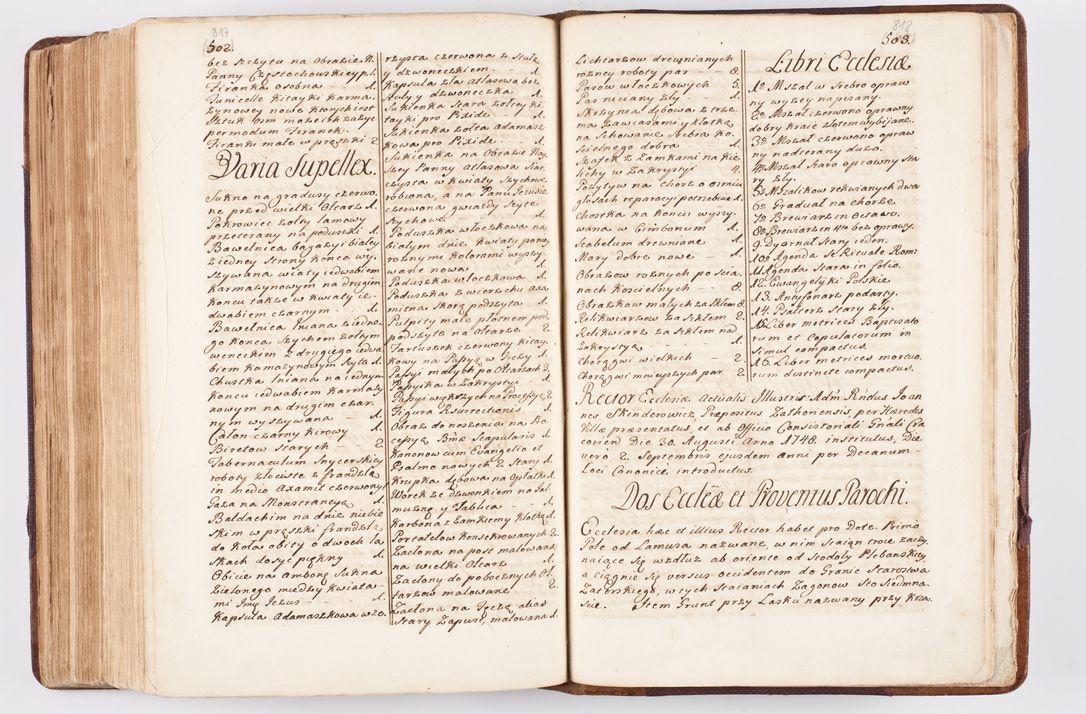 817
502.
bez szczytu na Obrazie N.
Panny Częstochowskiey p. 1.
Firanka osobna 1.
Tunicelle kitayki karma-
zynowey nowe ktorych iest
Sztuk osm może ich zażyć
per modum Firanek.
Firanki małe w prążki 2
Varia Supellex.
Sukno na gradusy czerwo-
ne przed wielki Ołtarz 1.
Pokrowiec żołty lamowy
przeterany na poduszki 1.
Bawełnica bagazyi białey
z iedney strony końca wy-
szywana w kwiaty iedwabiem
karmazynowym na drugim
końcu także w kwiaty ie-
dwabiem czarnym 1.
Bawełnica lniana z iedne-
go końca szychem żołtym
weneckim z drugiego iedwa-
biem karmazynowym szyta 1.
Chustka lniana na iednym
końcu iedwabiem karmazy-
nowym na drugim czar-
nym wyszywana 1.
Całon czarny kirowy 1.
Biretow starych 2.
Tabernaculum snycerskiey
roboty złociste z frandzlą
in medio Axamit czerwony 1.
Gaza na Monstrancyą 1.
Baldachim na dnie niebie-
skim w prążki frandzla
do koła obity o dwoch la-
skach dosyć piękny 1.
Obicie na ambonę Sukna
zielonego między kwiata-
mi Imę Jezus 1.
Kapsuła Adamaszkowa w zo-
rzysta czerwona z stułą
y dzwoneczkiem. 1.
Kapsuła zła Atłasowa bez
stuły y dzwoneczka 1.
Sukienka stara żołtey ki-
tayki pro Pixide. 1.
Sukienka żołta adamasz-
kowa pro Pixide. 1.
Sukienka na Obrazie Nay-
szey Panny atłasowa siar-
czysta w kwiaty szychowe
robiona, a na Panu Jezusie
czerwona gwiazdy szyte
szychowe 1.
Poduszka włoczkowa na
białym dnie kwiaty ponsy
rożnymi kolorami wyszy-
wane nowa 1.
Poduszka włoczkowa 1.
Poduszka z wierzchu axa-
mitna skorą podszyta 1.
Pulpity małe płotnem pod-
podszyte na Ołtarze 2.
Fartuszek czerwony kitay-
kowy na Passyą w Tęczy 1.
Passyi małych po Ołtarzach 3.
Passyika w Zakrystyi 1.
Passyi większych na Processyą 2.
Figura Resurrectionis 1.
Obraz do noszenia na Pro-
cessyą Bmæ Scapularis 1.
Kanonow cum Evangelio et
Psalmo nowych 2. Stary 1.
Krupka dębowa na opłatki 1.
Worek ze dzwonkiem na Jał-
mużnę y Tablica 1.
Karbona z zamkiemy kłotką 1.
Portatelow konsekrowanych 2.
Zasłona na post malowana
na wielki Ołtarz 1.
Zasłony do pobocznych Oł-
tarzow malowane 2.
Zasłona na Tęczę alias
Stary Zapust, malowana 1.
818
503.
Lichtarzow drewnianych
rożney roboty par 8.
Pasow włoczkowych 3.
Pas niciany zły 1.
Skrzynia dębowa z trze-
ma zawiasami y kłotką
na schowanie srebra ko-
ścielnego dobra 1.
Szafek z zamkami na kie-
lichy w Zakrystyi 4.
Pozytyw na chorze o osmiu
głosach reparacyi potrzebuie 1.
Chostka na końcu wyszy-
wana w Cimborium 1.
Scabellum drewniane 1.
Mary dobre nowe 1.
Obrazow rożnych po ścia-
nach kościelnych 8.
Obrazkow małych za szkłem 8.
Relikwiarzow za szkłem 2.
Relikwiarz za szkłem na
Zakrystyą 1.
Chorągwi wielkich 2.
Chorągwi mnieyszych par 2.
Libri Ecclesiæ
1º Mszał w srebro opraw
ny wyżey napisany.
2º Mszał czerwono oprawny
dobry kracie złotem wybijane.
3º Mszał czerwono opraw
ny nadterany dużo.
4º Mszał staro oprawny sta
ry zły.
5º Mszalikow rekwialnych dwa
6º Graduał na chorze.
7º Brewiarz in octavo.
8º Brewiarz in 4to bez oprawy.
9. Dyarnał stary ieden.
10º Agenda se Rituale Rom:
11 Agenda stara in folio.
12. Ewangelyki Polskie
13. Antyfonarz podarty.
14. Psałterz stary zły.
15 Liber metrices Baptisato
rum et Copulatorum in
simul compactus.
16. Liber metrices mortuo-
rum distincte compactus.
Rector Ecclesiæ Actualis Illustris Adm Rndus Joan
nes Skinderowicz Præpositus Zathoriensis, per Hæredes
Villæ præsentatus, et ab Officio Consistoriali Gnali Cra
covien Die 30. Augusti Anno 1748. institutus, Die
vero 2. Septembris ejusdem anni per Decanum
Loci Canonice introductus.
Dos Ecclæ et Proventus Parochi.
Ecclesia hæc et illius Rector habet pro Dote. Primo
Pole od Lamusa nazwane, w nim staian troie zaczy-
naiące się wzdłuż ab oriente od Stodoły Plebańskiey
a ciągnie się versus occidentem do Granic Starostwa
Zatorskiego, w tych staianiach Zagonow sto siedmna-
ście. Item Grunt przy Lasku nazwany przy krza-